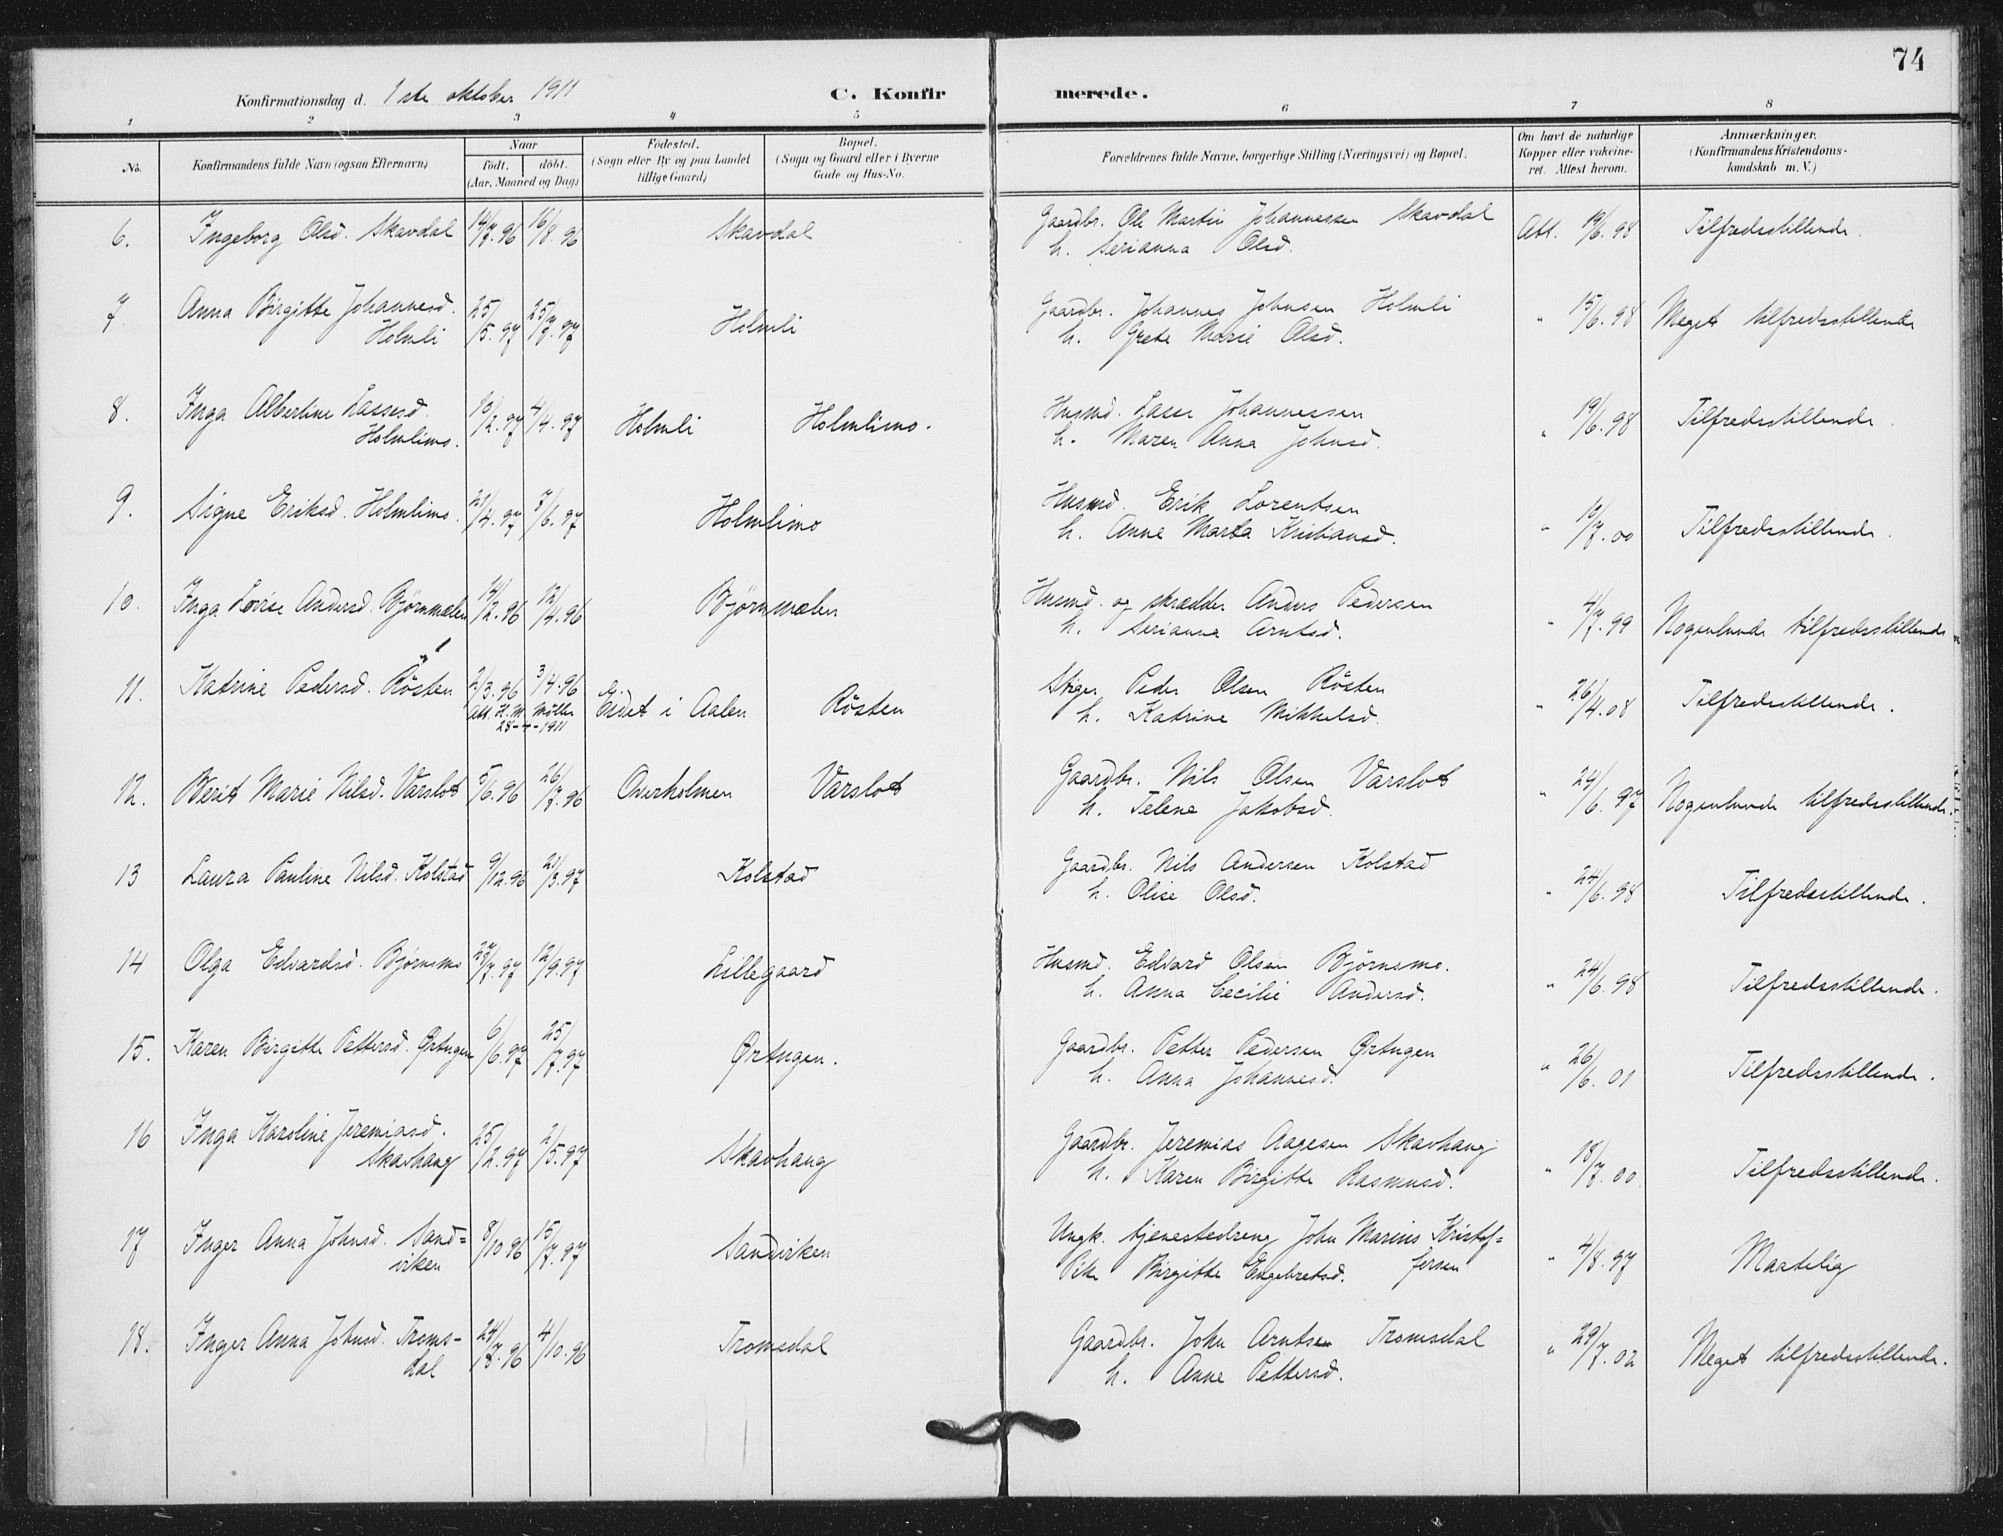 74
Konfirmationsdag d. 1ste oktober 1911 C. Konfir merede.
1 2 3 4 5 6 7 8
No. Konfirmandens fulde Navn (ogsaa Efternavn) Naar født. døbt. (Aar, Maaned og Dag) Fødested. (Sogn eller By og paa Landet tillige Gaard) Bopæl. (Sogn og Gaard eller i Byerne Gade og Hus-No. Forældrenes fulde Navne, borgerlige Stilling (Næringsvei) og Bopæl. Om havt de naturlige Kopper eller vakcineret. Attest herom. Anmærkninger. (Konfirmandens Kristendomskundskab m. V.)
6. Ingeborg Olsd. Skavdal 14/7.96 16/8.96 Skavdal Gaardbr. Ole Martin Johannessen Skavdal Att. 19/6.98 Tilfredsstillende.
h. Serianna Olsd.
7 Anna Birgitte Johannesd. 25/5.97 25/7.97 Holmli Gaardbr. Johannes Johnsen Holmli " 15/6.98 Meget tilfredsstillende
Holmli h. Grete Marie Olsd.
8. Inga Albertine Lassesd. 10/2.97 4/4.97 Holmli Holmlimo. Husmd. Lasse Johannessen " 19/6.98 Tilfredsstillende.
Holmlimo. h. Maren Anna Johnsd.
9. Signe Eriksd. Holmlimo. 21/4.97 7/6.97 Holmlimo Husmd. Erik Lorentsen " 19/7.00 Tilfredsstillende.
h. Anne Marta Kristiansd.
10. Inga Lovise Andersd. Bjørnmælen 14/2.96 12/4.96 Bjørnmælen Husmd. og skrædder Anders Pedersen " 4/7.99 Nogenlunde tilfredsstillende
h. Serianna Arntsd.
11. Katrine Pedersd. Røsten 2/3.96 3/4.96 Eidet i Aalen Røsten Stiger Peder Olsen Røsten " 26/4.08 Tilfredsstillende.
Att. H. M. Møller h. Katrine Mikkelsd.
12. Berit Marie Nilsd. Varslot 5/6.96 26/7.96 Overholmen Varslot Gaardbr. Nils Olsen Varslot " 24/6.97 Nogenlunde tilfredsstillende.
h. Telene Jakobsd.
13 Laura Pauline Nilsd. Kolstad 9/12.96 21/3.97 Kolstad Gaardbr. Nils Andersen Kolstad " 24/6.98 Tilfredsstillende.
h. Olise Olsd.
14 Olga Edvardsd. Bjørnsmo 27/7.97 12/9.97 Lillegaard Husmd. Edvard Olsen Bjørnsmo. " 24/6.98 Tilfredsstillende.
h. Anna Cecilie Andersd.
15. Karen Birgitte Pettersd. Ørtugen 6/6.97 25/7.97 Ørtugen. Gaardbr. Petter Pedersen Ørtugen " 26/6.01 Tilfredsstillende.
h. Anna Johannesd.
16 Inga Karoline Jeremiasd. 25/2.97 2/5.97 Skavhaug Gaardbr. Jeremias Aagesen Skavhaug " 18/7.00. Tilfredsstillende.
Skavhaug h. Karen Birgitte Rasmusd.
17 Inger Anna Johnsd. Sand= 8/10.96 15/7.97 Sandviken Ungk. tjenestedreng John Marius Kristof= " 4/8.97 Maatelig
viken Pike Birgitte Engebretsd. fersen
18. Inger Anna Johnsd. Troms- 24/8.96 4/10.96 Tromsdal Gaardbr. John Arntsen Tromsdal " 29/7.02 Meget tilfredsstillende.
dal h. Anne Pettersd.